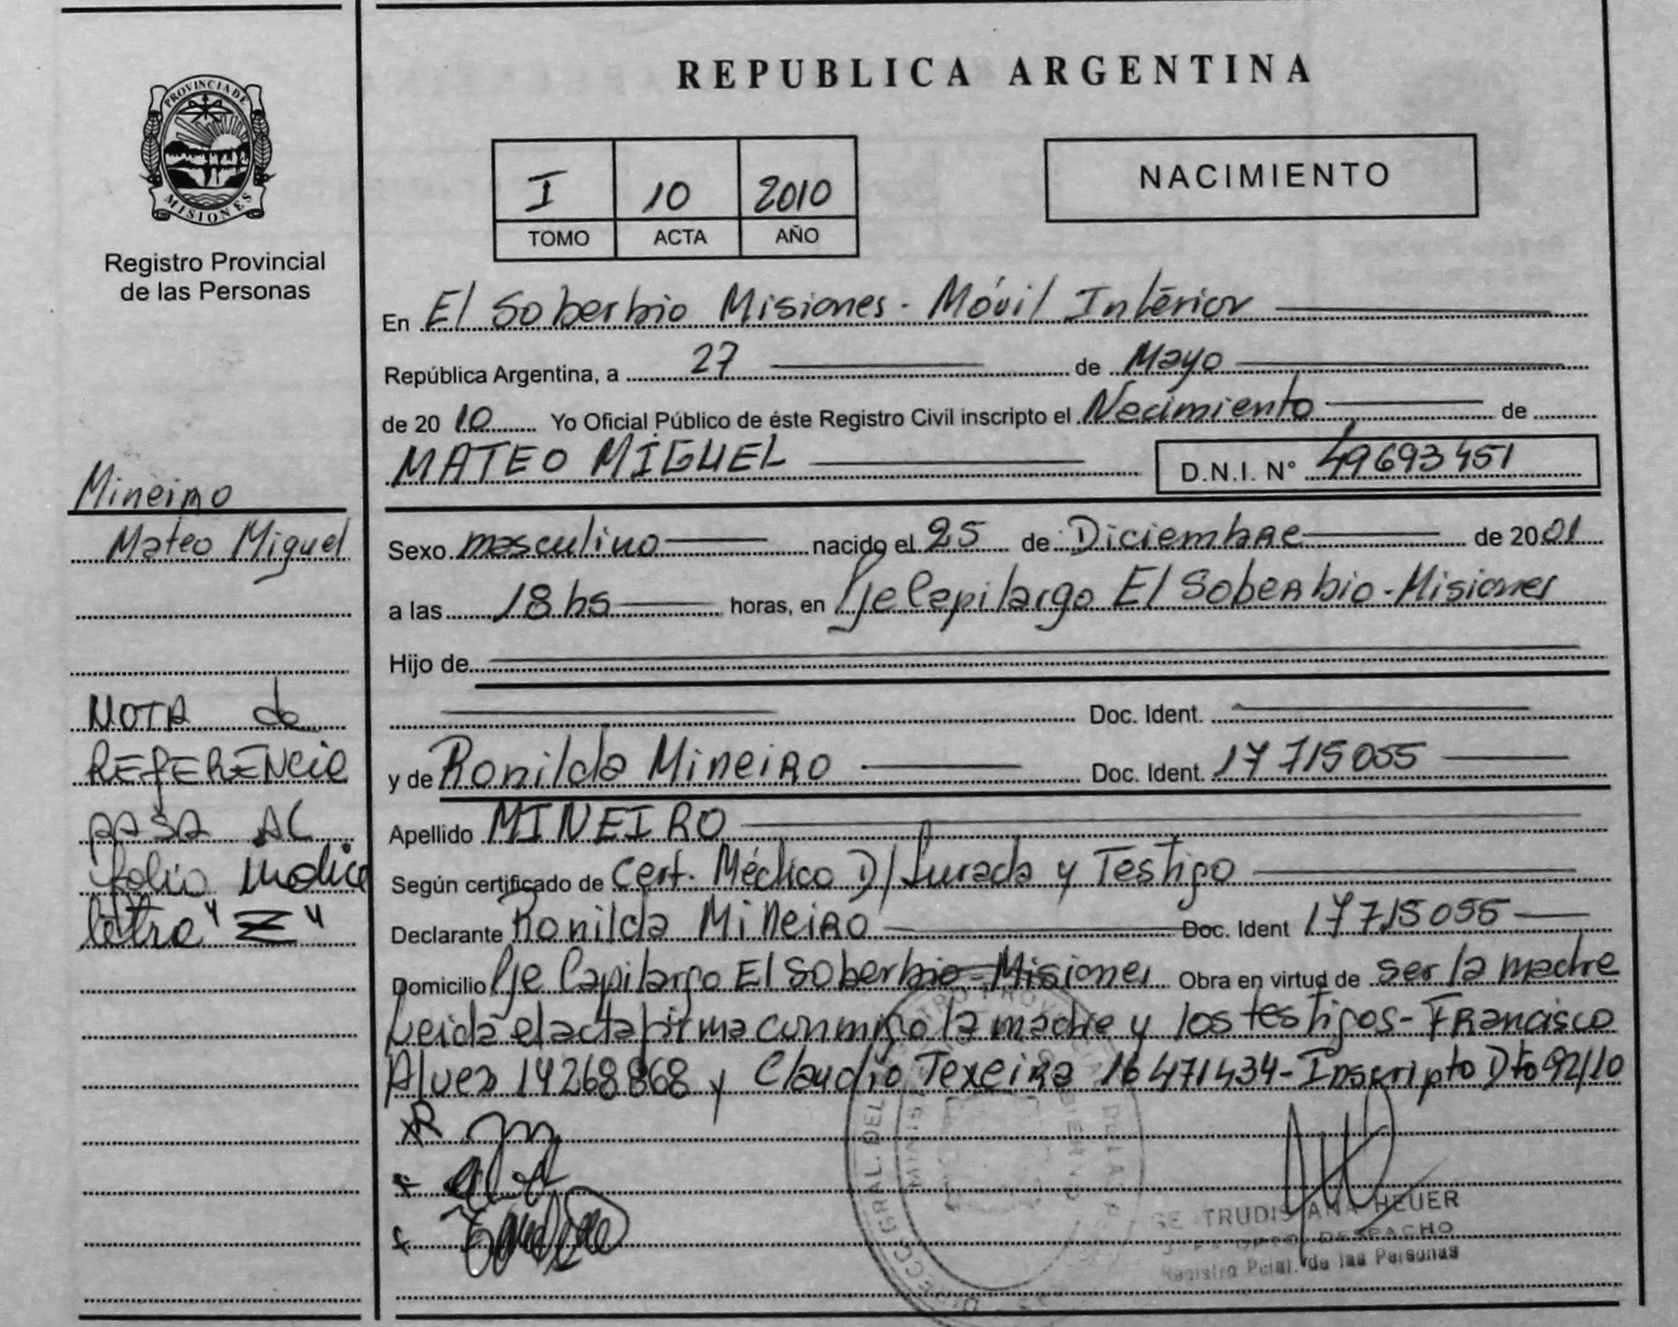 PROVINCIA DE
MISIONES
Registro Provincial
de las Personas
REPUBLICA ARGENTINA
I 10 2010
TOMO ACTA AÑO
NACIMIENTO
En El Soberbio Misiones - Móvil Interior
República Argentina, a 27 de Mayo
de 2010 Yo Oficial Público de éste Registro Civil inscripto el Nacimiento de
MATEO MIGUEL D.N.I. N° 49693451
Mineiro
Mateo Miguel
Sexo masculino nacido el 25 de Diciembre de 2001
a las 18 hs horas, en Pje Capilargo El Soberbio - Misiones
Hijo de
Doc. Ident.
y de Ronilda Mineiro Doc. Ident. 17715055
Apellido MINEIRO
Según certificado de Cert. Médico D/Jurada y Testigo
Declarante Ronilda Mineiro Doc. Ident 17715055
Domicilio Pje Capilargo El Soberbio - Misiones Obra en virtud de ser la madre
Leida el acta firma conmigo la madre y los testigos - Francisco
Alvez 14268868 y Claudio Texeira 16471434 - Inscripto Dto 92/10
NOTA de
REFERENCIA
PASA AL
folio indice
letra "Z"
HEUER
DESPACHO
Registro Pcial. de las Personas